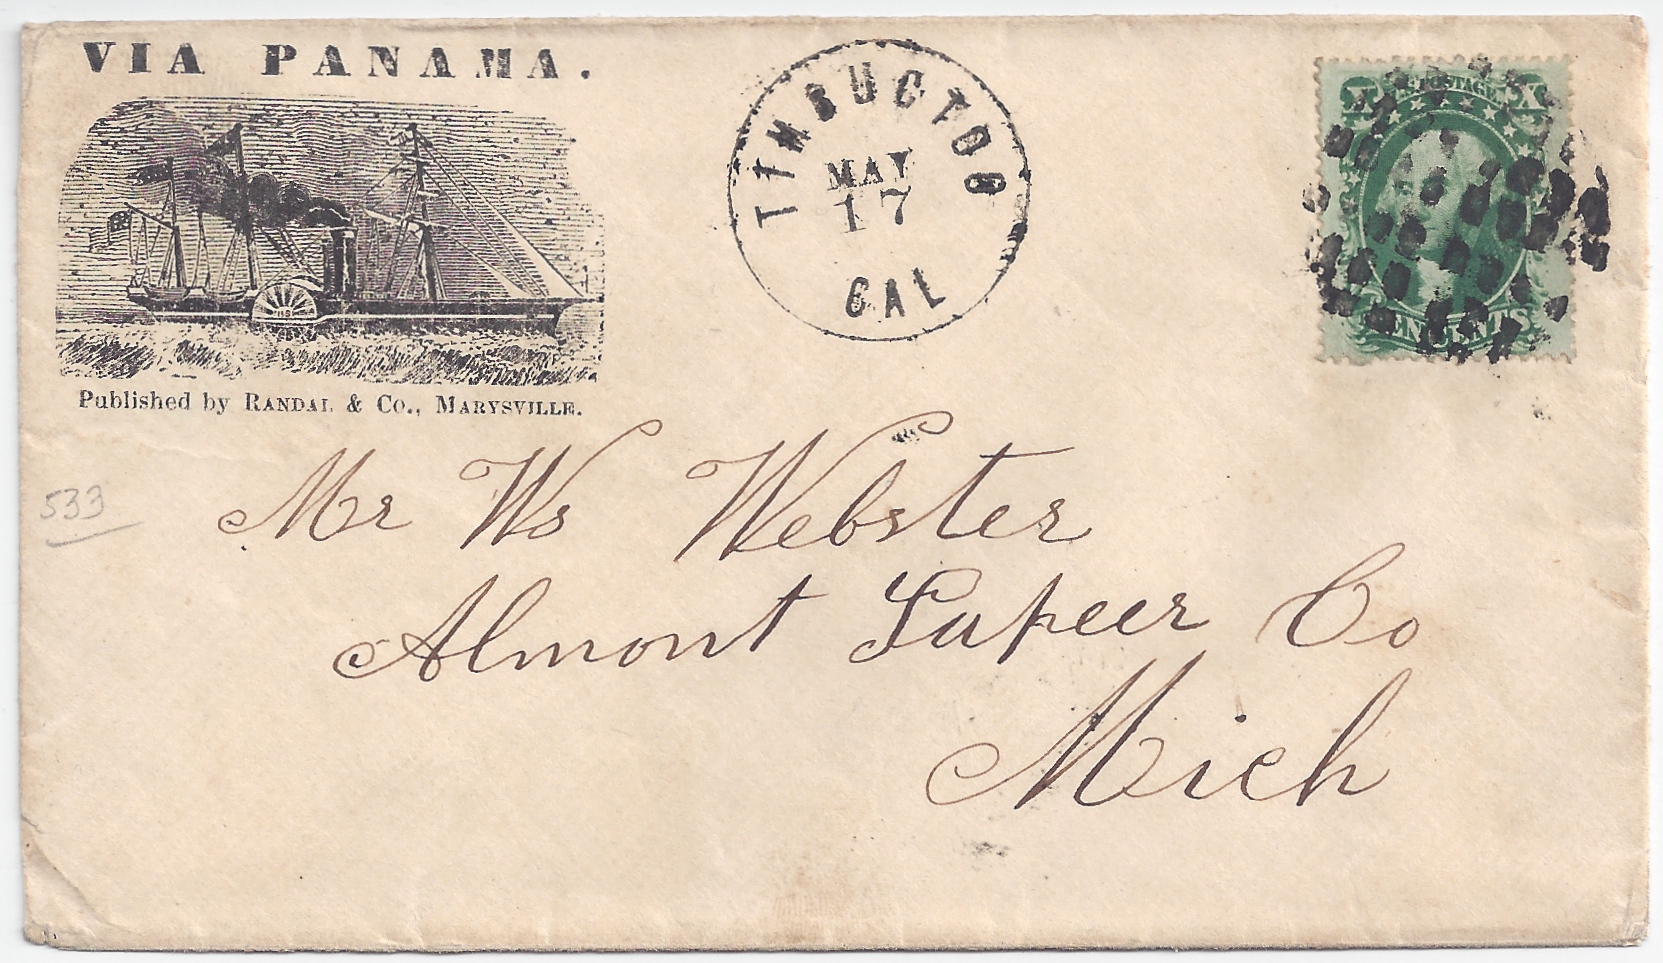 VIA PANAMA.
Published by RANDAL & Co., MARYSVILLE.
TIMBUCTOO
MAY
17
CAL
U.S. POSTAGE
X X
TEN CENTS
533
Mr Ws Webster
Almont Lapeer Co
Mich